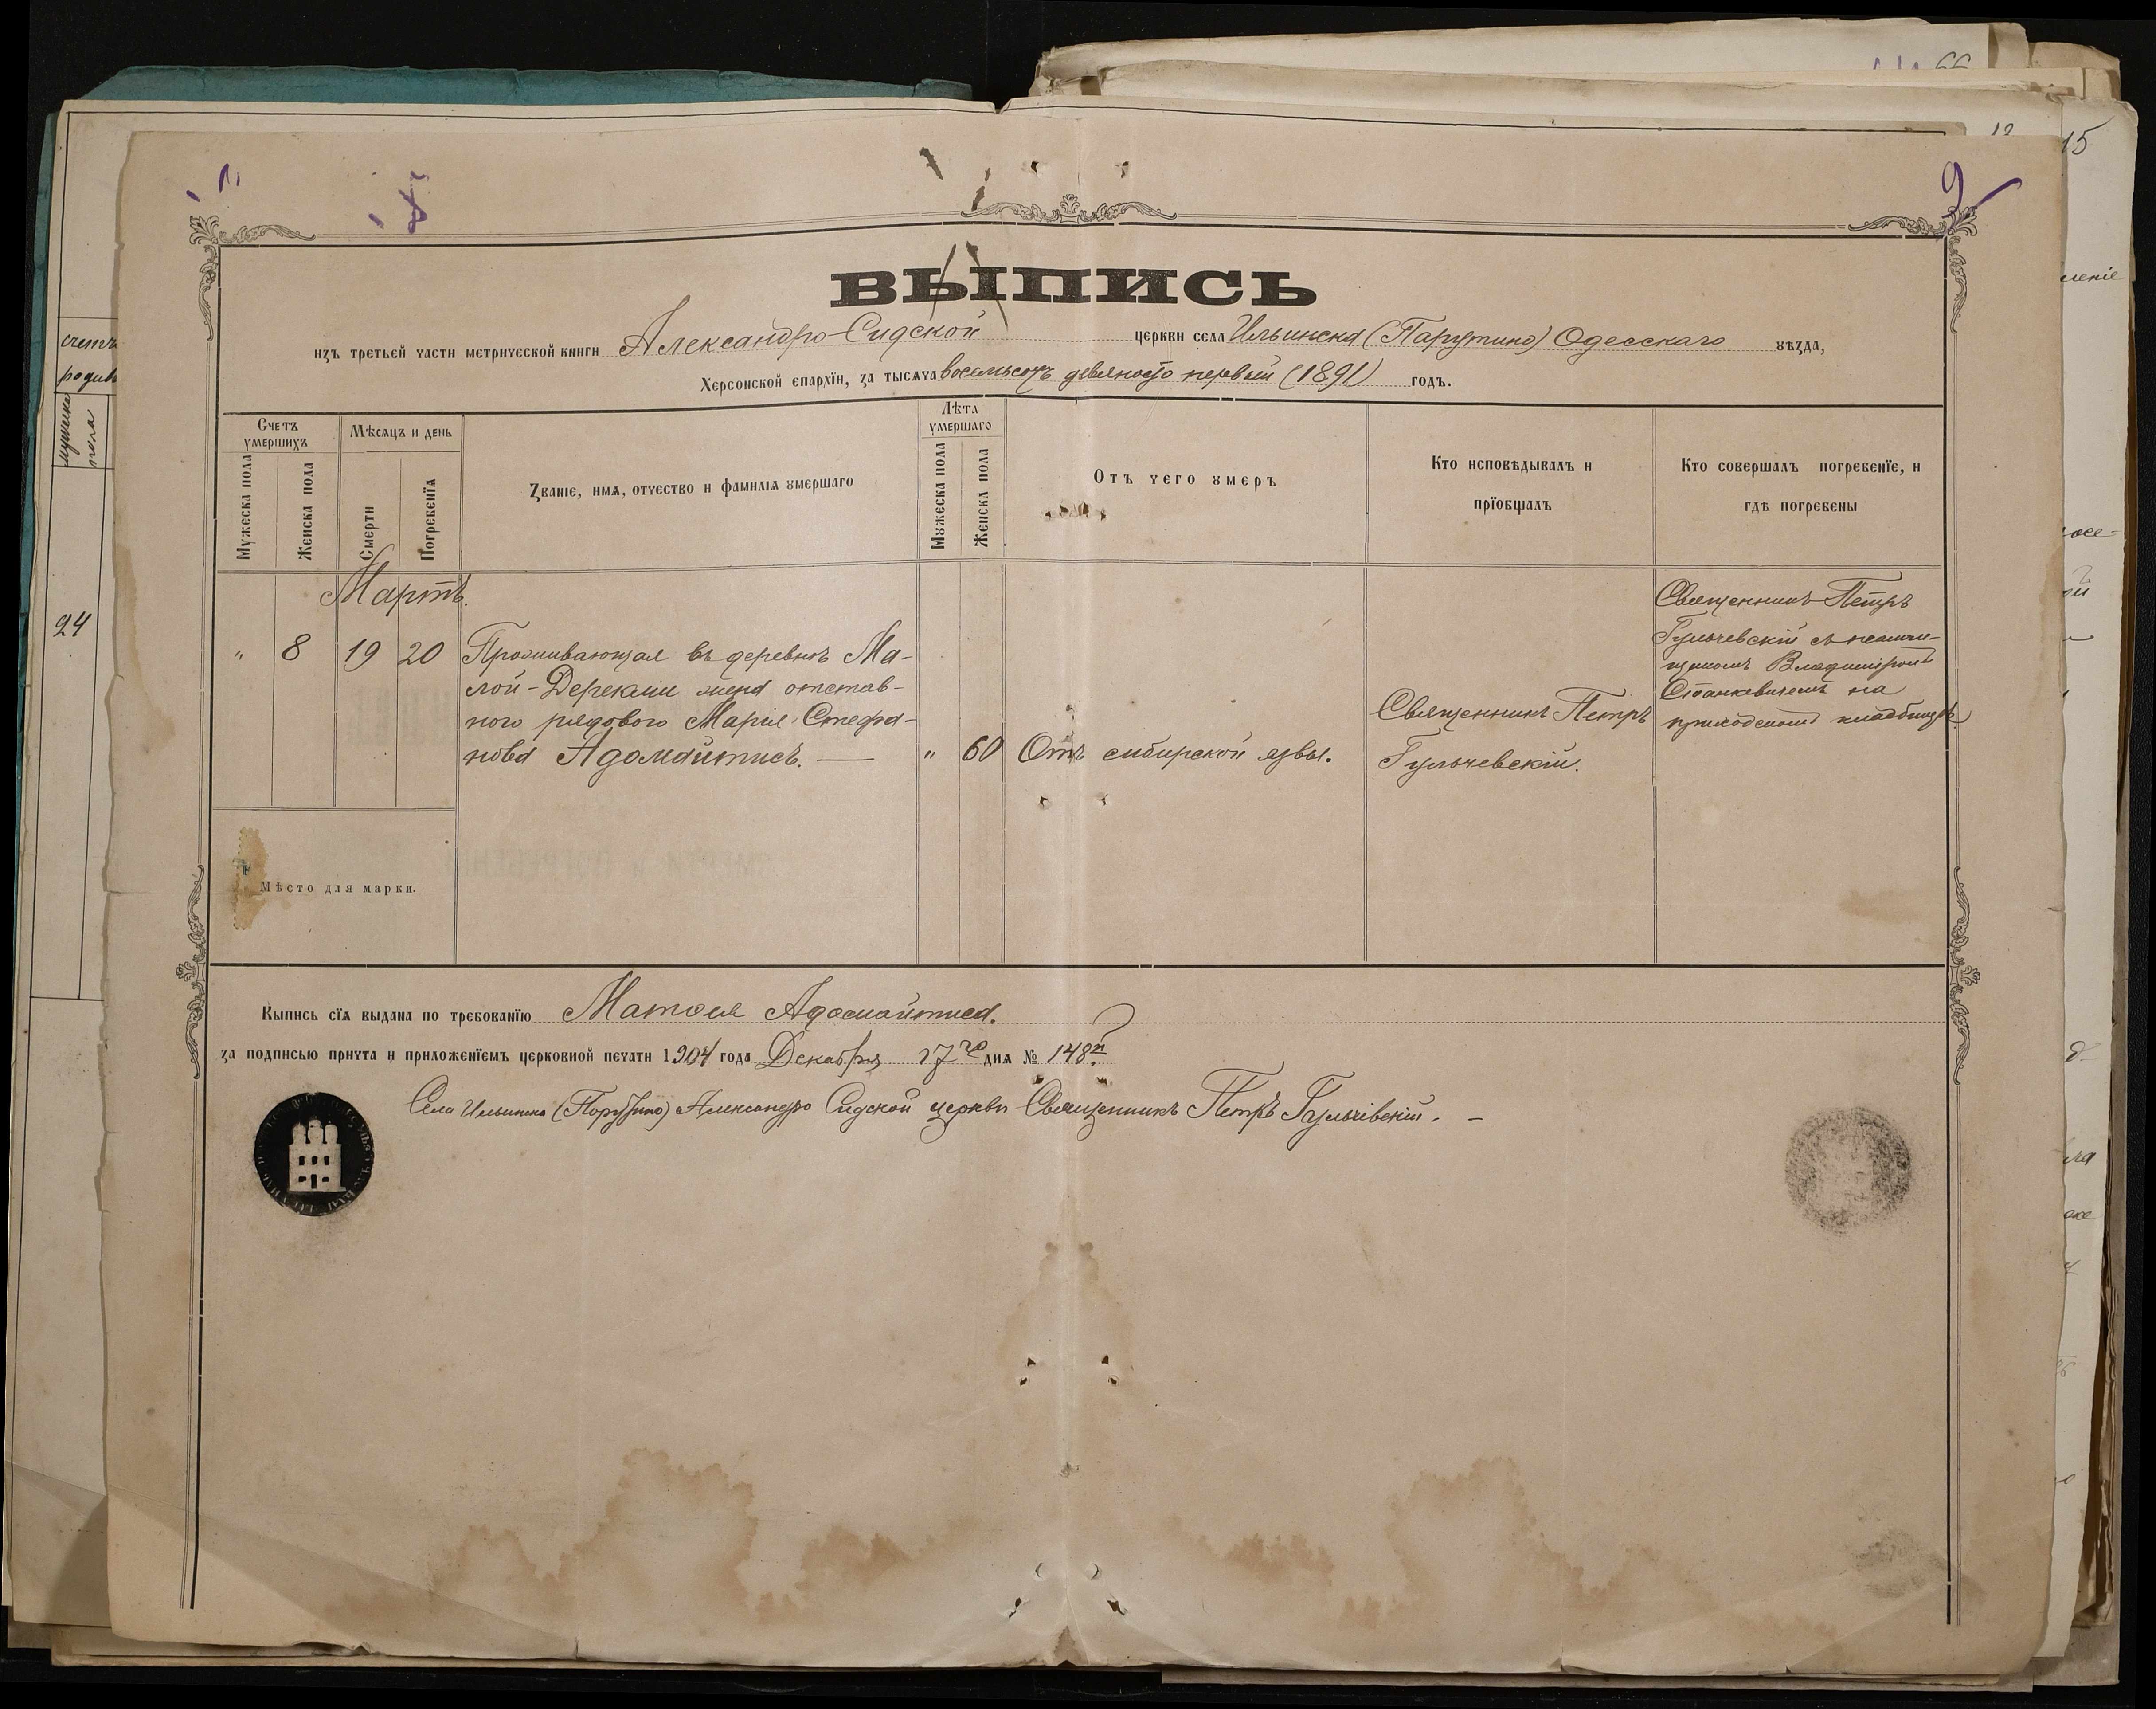 15
12
9
ВЫПИСЬ
изъ третьей части метрической книги Александро-Сидской церкви села Ильинска (Парутино) Одесскаго уѣзда,
Херсонской епархїи, за тысяча восемьсотъ девяносто первый (1891) годъ.
Счетъ умершихъ
Мужеска пола
Женска пола
Мѣсяцъ и день
Смерти
Погребенїя
Званіе, имя, отчество и фамилія умершаго
Лѣта умершаго
Мужеска пола
Женска пола
Отъ чего умеръ
Кто исповѣдывалъ и
прїобщалъ
Кто совершалъ погребенїе, и
гдѣ погребены
Мартъ.
„ 8 19 20
Проживающая въ деревнѣ Ма-
лой-Дерекліи жена отстав-
ного рядового Марія Стефа-
нова Адомайтисъ. —
„ 60
Отъ сибирской язвы.
Священникъ Петръ
Гульчевскій.
Священникъ Петръ
Гульчевскій съ псалом-
щикомъ Владиміромъ
Станкевичемъ на
приходскомъ кладбищѣ
Мѣсто для марки.
Выпись сїя выдана по требованїю Матвея Адомайтиса.
за подписью причта и приложенїемъ церковной печати 1904 года Декабря 17го дня № 148й
Села Ильинка (Порутино) Александро Сидской церкви Священникъ Петръ Гульчевскій. —
24